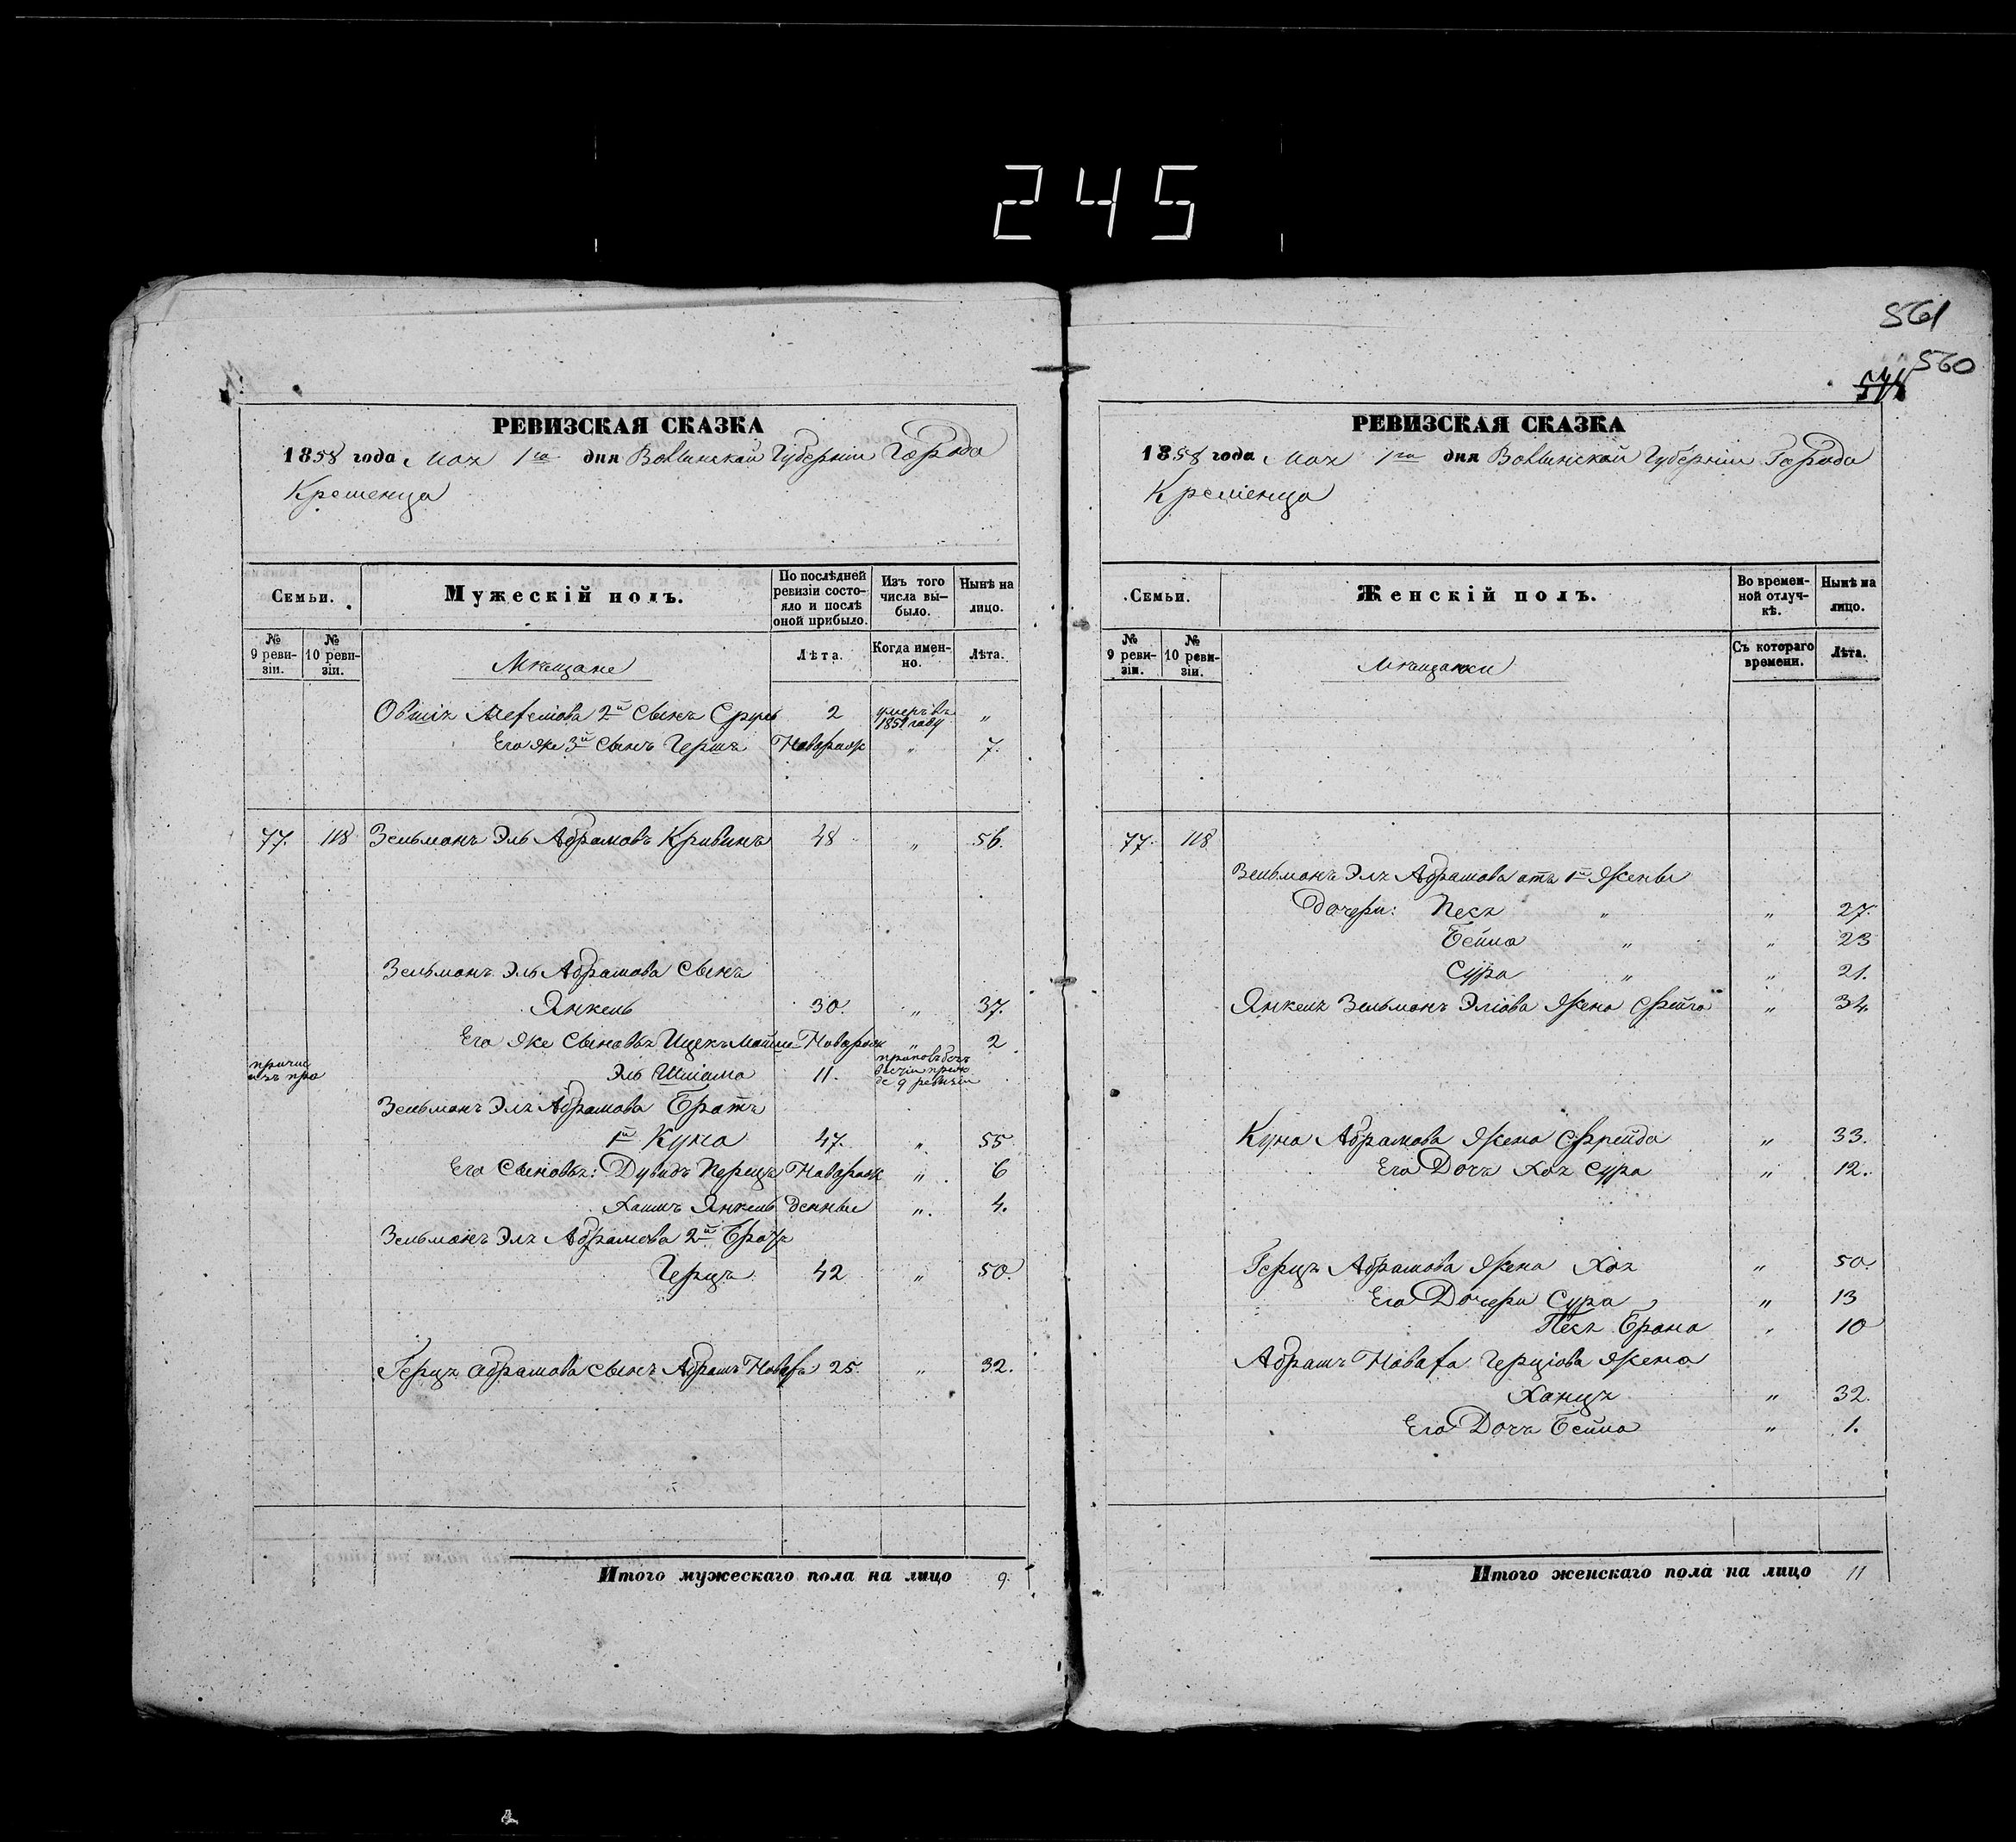 245
561
560
РЕВИЗСКАЯ СКАЗКА
1858 года Мая 1го дня Волынской Губерніи Города
Кременца
Семьи.
Мужескій полъ.
По послѣдней ревизіи состояло и послѣ оной прибыло.
Изъ того числа выбыло.
Нынѣ на лицо.
№ 9 ревизіи.
№ 10 ревизіи.
Мѣщане
Лѣта.
Когда именно.
Лѣта.
Овшія 2й Сынъ Сруль 2 умеръ въ 1851 году "
Его же 3й Сынъ Гершъ Новорож " 7.
77. 118 Зельманъ Эль Абрамовъ Кривинъ 48 " 56.
Зельманъ Эль Абрамова Сынъ
Янкель 30. " 37.
Его же Сыновья Ицекъ Новорож " 2
Эль Шліома 11.
9 ревизіи
Зельманъ Эля Абрамова Братъ
1й Куна 47. " 55
Его Сыновья: Дувидъ Перецъ Новорож " 6
Хаимъ Янкель денные " 4.
Зельманъ Эля Абрамова 2й Братъ
Герцъ 42 " 50.
Герцъ Абрамова сынъ Абрамъ 25. " 32.
Итого мужескаго пола на лицо 9.
РЕВИЗСКАЯ СКАЗКА
1858 года Мая 1го дня Волынской Губерніи Города
Кременца
Семьи.
Женскій полъ.
Во временной отлучкѣ.
Нынѣ на лицо.
№ 9 ревизіи.
№ 10 ревизіи.
Мѣщанки
Съ котораго времени.
Лѣта.
77. 118
Зельманъ Эля Абрамова отъ 1й Жены
Дочери: Песя " " 27.
Бейла " " 23
Сура " " 21.
Янкеля Зельманъ Эліова Жена Фейга " 34.
Куна Абрамова Жена Фрейда " 33.
Его Дочь Хая Сура " 12.
Герцъ Абрамова Жена Хая " 50.
Его Дочери Сура " 13
Песя Брана " 10
Абрамъ Герціова Жена
Ханця " 32.
Его Дочь Бейла " 1.
Итого женскаго пола на лицо 11